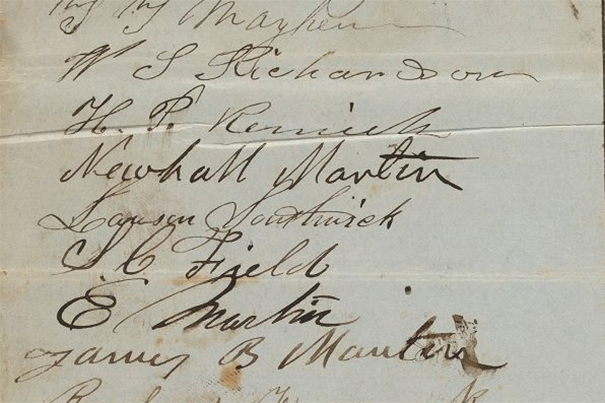 Mayhew
W S Richardson
H. P. Renick
Newhall Martin
Lawson Southwick
S C Field
E Martin
James B Martin